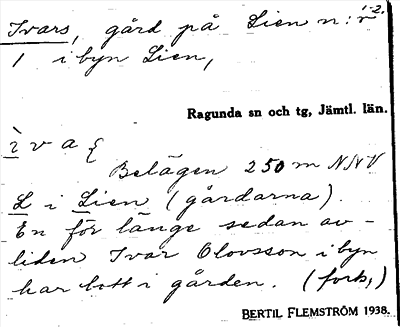 Ivars, gård på Lien n:r 1-2.
1 i byn Lien,
Ragunda sn och tg, Jämtl. län.
ìva{
Belägen 250 m NNV
L i Lien (gårdarna).
En för länge sedan av-
liden Ivar Olovsson i byn
har bott i gården. (forts.)
BERTIL FLEMSTRÖM 1938.